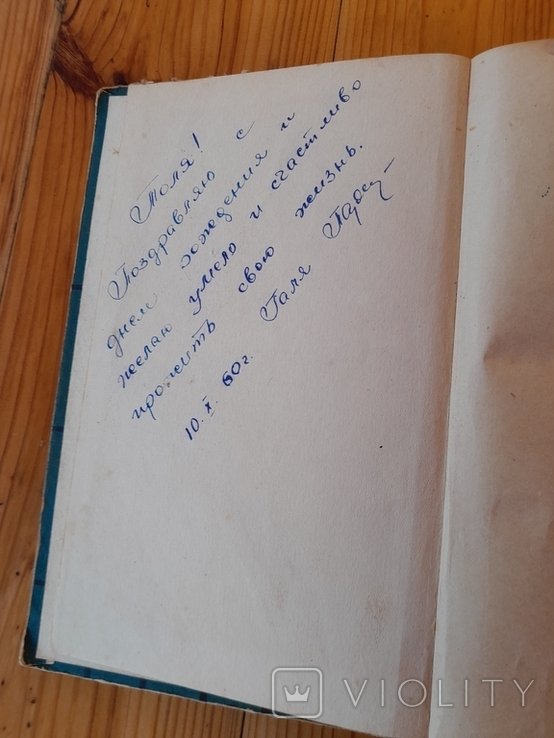 Толя!
Поздравляю с
днем рождения и
желаю умело и счастливо
прожить свою жизнь.
Галя
10.X.60г.
VIOLITY